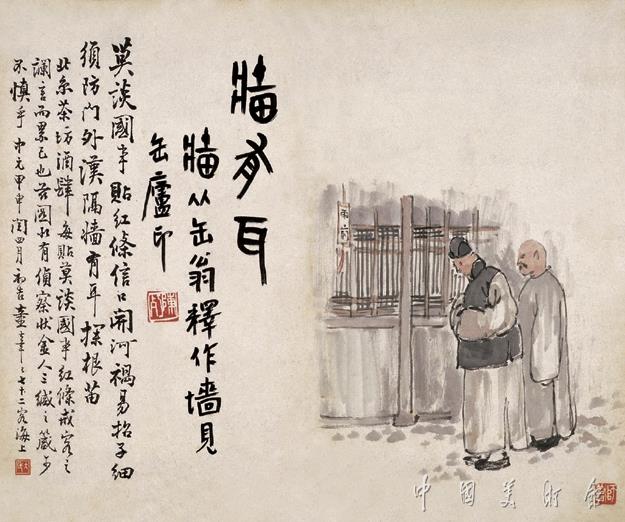 牆有耳
牆从缶翁釋作墙見
缶廬印
莫談國事貼紅條信口開河禍易招子細
須防門外漢隔墙有耳探根苗
北京茶坊酒肆每貼莫談國事紅條戒客之
讕言而累己也若圖有偵察狀金人三緘之箴可
不慎乎甲申閏四月初吉七十二客海上
中國美術館